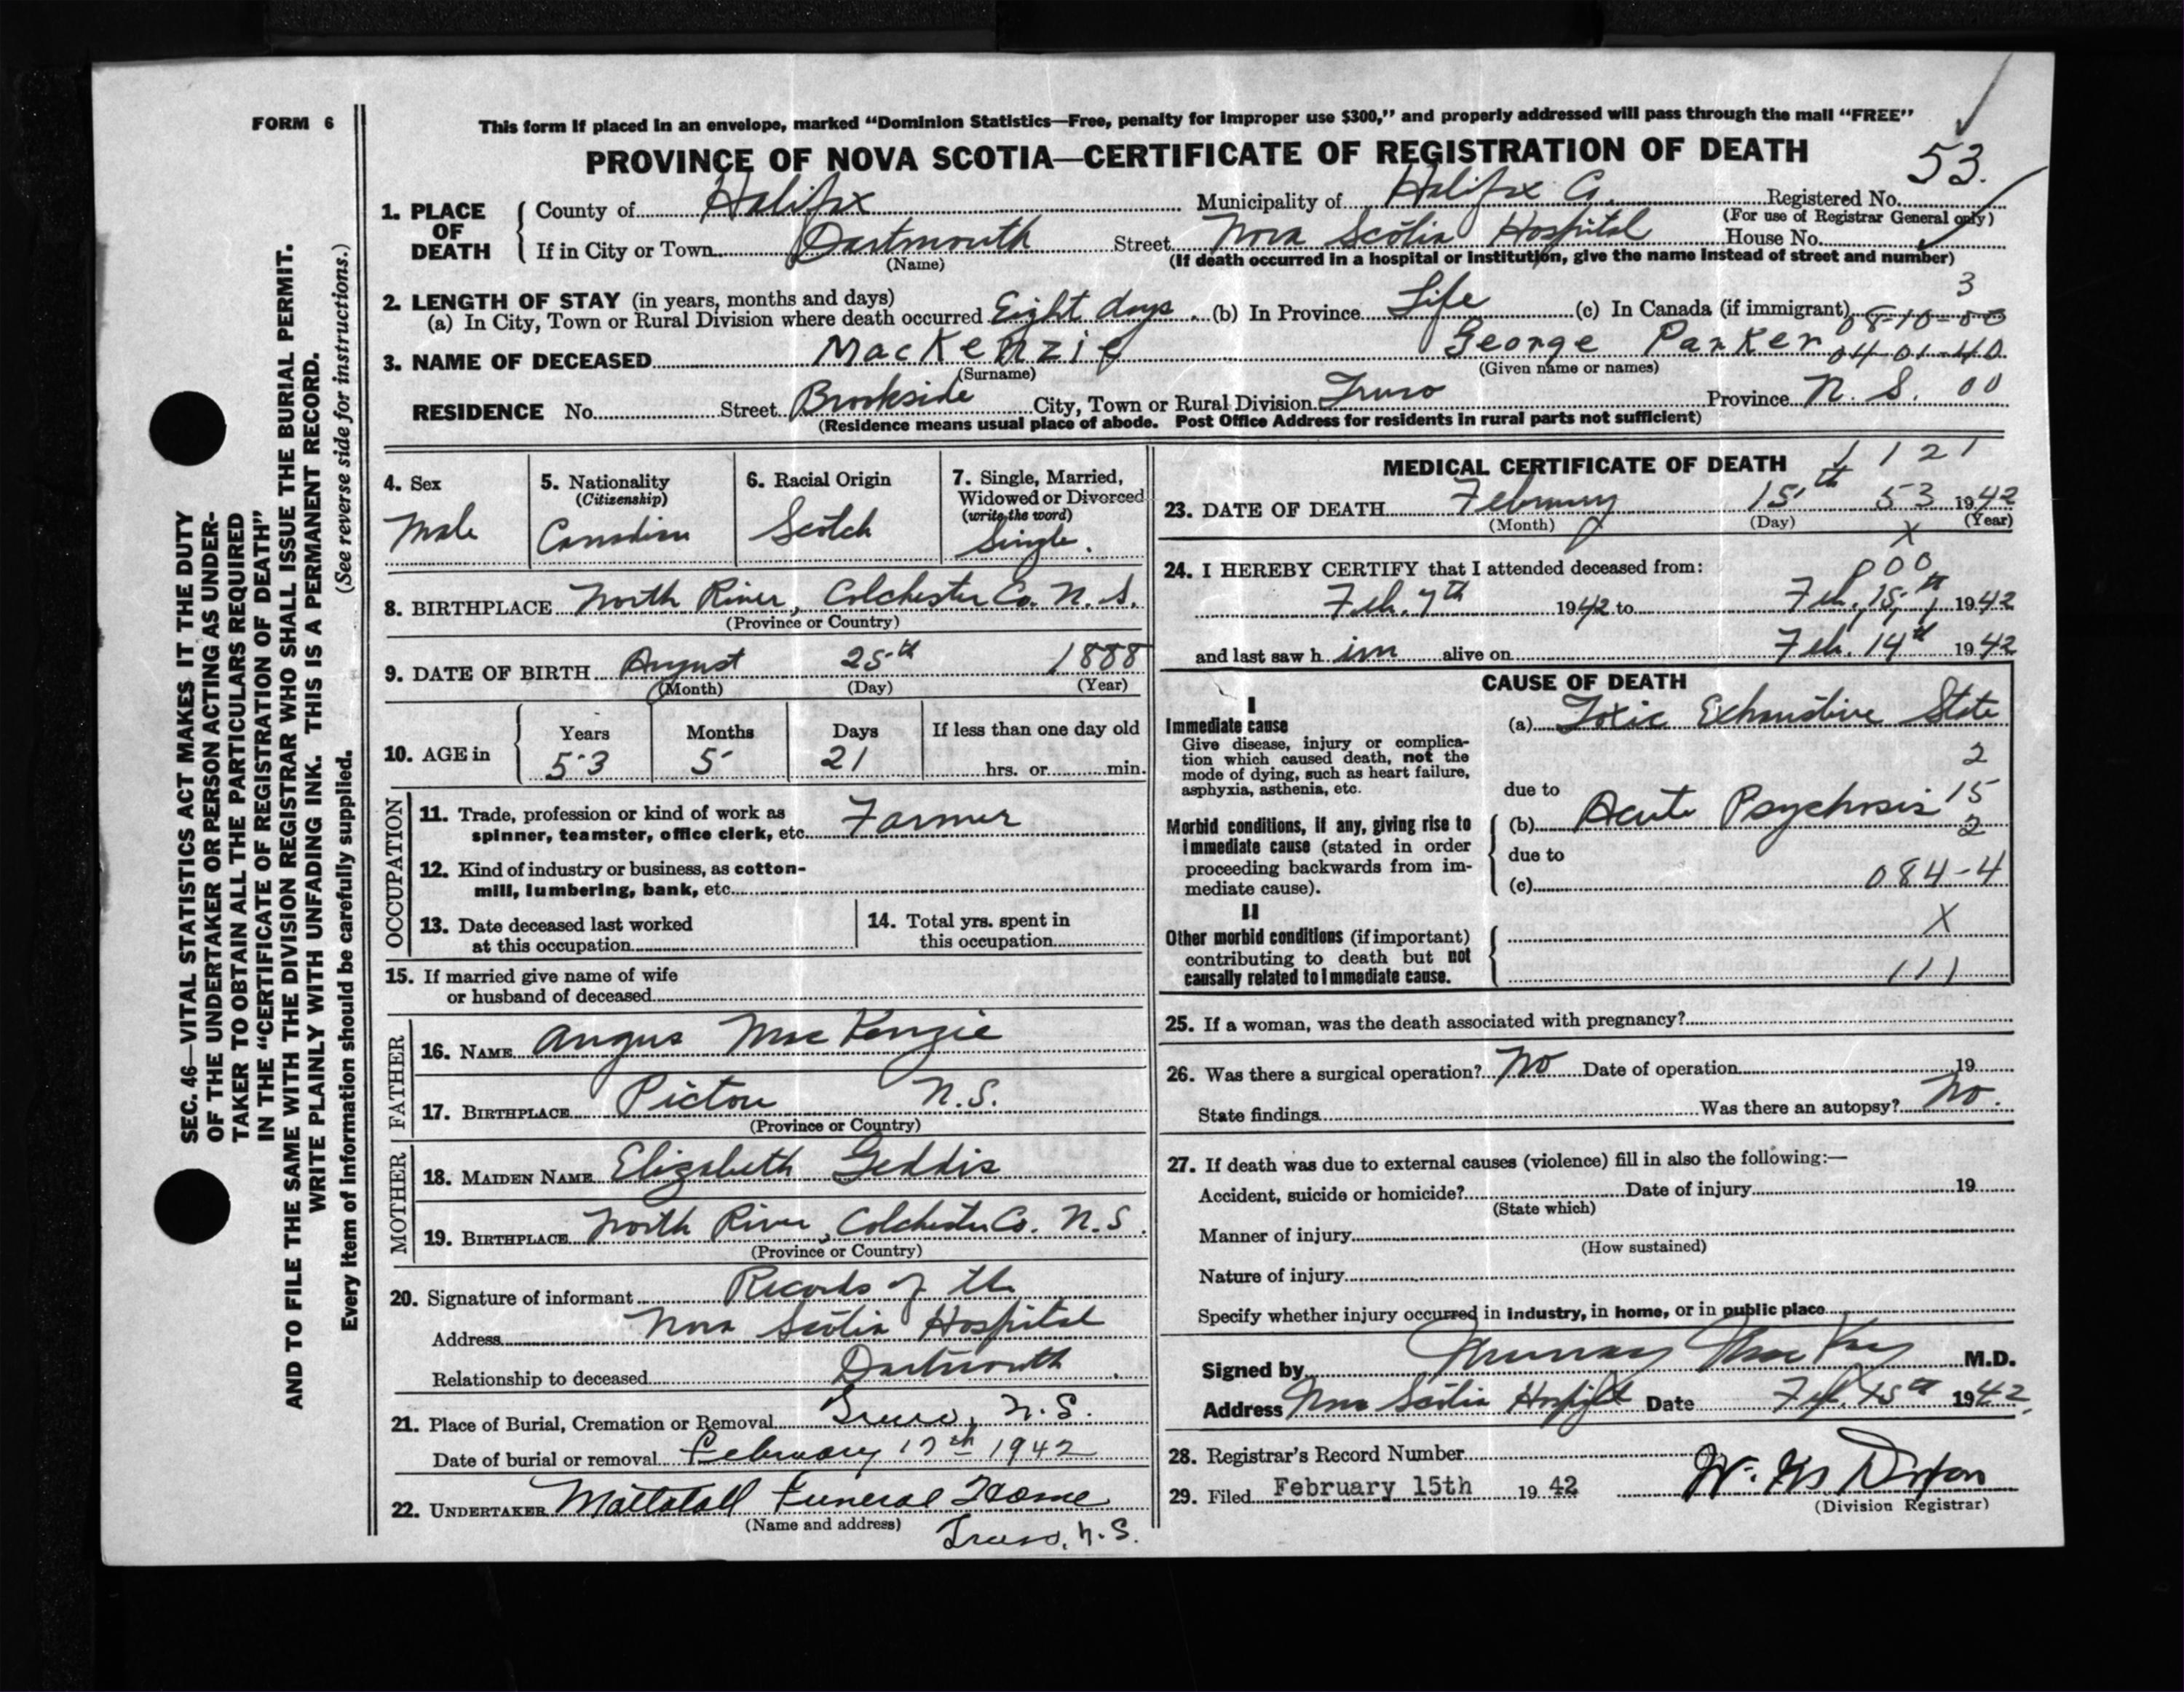 FORM 6
This form if placed in an envelope, marked "Dominion Statistics—Free, penalty for improper use $300," and properly addressed will pass through the mail "FREE"
PROVINCE OF NOVA SCOTIA—CERTIFICATE OF REGISTRATION OF DEATH
53.
1. PLACE OF DEATH
County of Halifax Municipality of Halifax Co. Registered No.
(For use of Registrar General only)
If in City or Town Dartmouth Street Nova Scotia Hospital House No.
(Name) (If death occurred in a hospital or institution, give the name instead of street and number)
2. LENGTH OF STAY (in years, months and days) 3
(a) In City, Town or Rural Division where death occurred Eight days. (b) In Province Life (c) In Canada (if immigrant) 08-10-00
3. NAME OF DECEASED MacKenzie George Parker 04-01-40
(Surname) (Given name or names)
RESIDENCE No. Street Brookside City, Town or Rural Division Truro Province N. S. 00
(Residence means usual place of abode. Post Office Address for residents in rural parts not sufficient)
4. Sex
Male
5. Nationality
(Citizenship)
Canadian
6. Racial Origin
Scotch
7. Single, Married,
Widowed or Divorced
(write the word)
Single.
8. BIRTHPLACE North River, Colchester Co. N. S.
(Province or Country)
9. DATE OF BIRTH August 25th 1888
(Month) (Day) (Year)
10. AGE in
Years Months Days If less than one day old
53 5 21 hrs. or min.
OCCUPATION
11. Trade, profession or kind of work as
spinner, teamster, office clerk, etc. Farmer
12. Kind of industry or business, as cotton-
mill, lumbering, bank, etc.
13. Date deceased last worked
at this occupation
14. Total yrs. spent in
this occupation
15. If married give name of wife
or husband of deceased
FATHER
16. NAME Angus MacKenzie
17. BIRTHPLACE Pictou N.S.
(Province or Country)
MOTHER
18. MAIDEN NAME Elizabeth Geddis
19. BIRTHPLACE North River, Colchester Co. N.S.
(Province or Country)
20. Signature of informant Records of the
Address Nova Scotia Hospital
Relationship to deceased Dartmouth
21. Place of Burial, Cremation or Removal Truro, N.S.
Date of burial or removal February 17th 1942
22. UNDERTAKER Mattatall Funeral Home
(Name and address) Truro, N.S.
MEDICAL CERTIFICATE OF DEATH 1 1 2 1
23. DATE OF DEATH February 15th 53 1942
(Month) (Day) (Year)
X
24. I HEREBY CERTIFY that I attended deceased from: 000
Feb. 7th 1942 to Feb. 15th, 1942
and last saw him alive on Feb. 14th 1942
CAUSE OF DEATH
I
Immediate cause
Give disease, injury or complica-
tion which caused death, not the
mode of dying, such as heart failure,
asphyxia, asthenia, etc.
(a) Toxic Exhaustive State
2
due to
15
Morbid conditions, if any, giving rise to
immediate cause (stated in order
proceeding backwards from im-
mediate cause).
(b) Acute Psychosis
2
due to
(c) 084-4
II
Other morbid conditions (if important)
contributing to death but not
causally related to immediate cause.
X
111
25. If a woman, was the death associated with pregnancy?
26. Was there a surgical operation? No Date of operation 19
State findings Was there an autopsy? No.
27. If death was due to external causes (violence) fill in also the following:—
Accident, suicide or homicide? Date of injury 19
(State which)
Manner of injury
(How sustained)
Nature of injury
Specify whether injury occurred in industry, in home, or in public place
Signed by Murray MacKay M.D.
Address Nova Scotia Hospital Date Feb. 15th 1942.
28. Registrar's Record Number
29. Filed February 15th 19 42
(Division Registrar)
SEC. 46—VITAL STATISTICS ACT MAKES IT THE DUTY
OF THE UNDERTAKER OR PERSON ACTING AS UNDER-
TAKER TO OBTAIN ALL THE PARTICULARS REQUIRED
IN THE "CERTIFICATE OF REGISTRATION OF DEATH"
AND TO FILE THE SAME WITH THE DIVISION REGISTRAR WHO SHALL ISSUE THE BURIAL PERMIT.
WRITE PLAINLY WITH UNFADING INK. THIS IS A PERMANENT RECORD.
Every item of information should be carefully supplied. (See reverse side for instructions.)